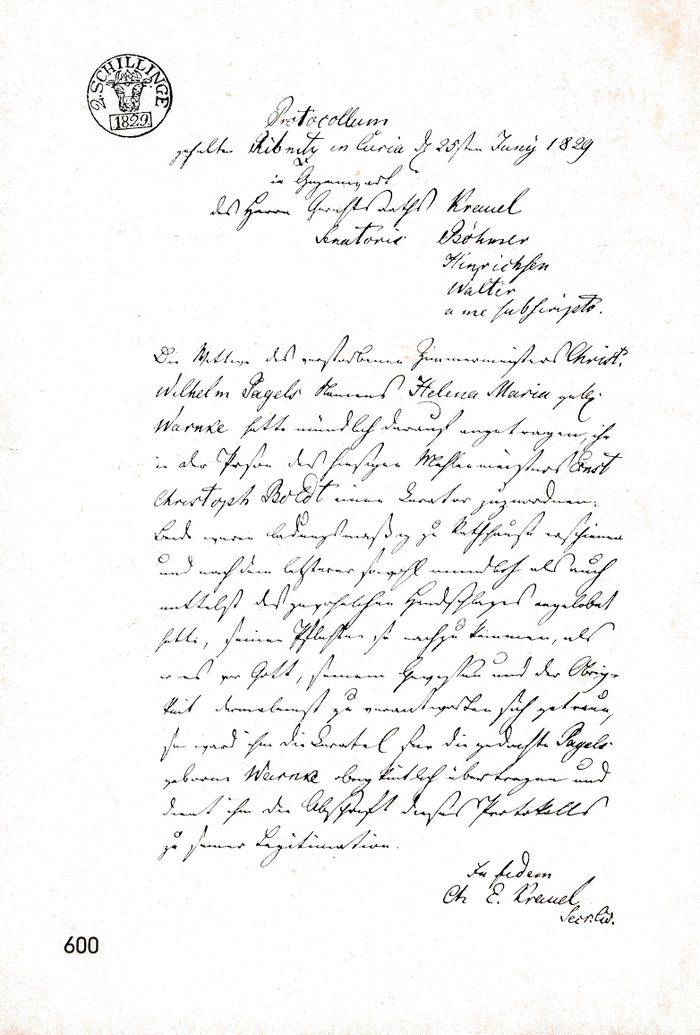 2. SCHILLINGE
1829
Protocollum
gehalten Ribnitz in Curia d 25sten Juny 1829
in Gegenwart
des Herrn Gerichtsraths Kreuel
Senatoris Böhmer
Hinrichsen
Walter
a me subscripto.
Die Wittwe des verstorbenen Zimmermeisters Christ.
Wilhelm Pagels Namens Helena Maria geb.
Warnke hatte mündlich darauf angetragen, ihr
in der Person des hiesigen Mühlenmeisters Ernst
Christoph Boldt einen Curator zuzuordnen.
Beide waren ladungsmäßig zu Rathhause erschienen
und nach dem letzterer sowohl mündlich als auch
mittelst des gewöhnlichen Handschlages angelobet
hatte, seinen Pflichten so nachzukommen, als
er es vor Gott, seinem Gewissen und der Obrig-
keit dermaleinst zu verantworten sich getraue,
so ward ihm die Curatel für die gedachte Pagels
geborne Warnke obrigkeitlich übertragen und
dient ihm die Abschrift dieses Protokolls
zu seiner Legitimation.
In fidem
E. Kreuel
600